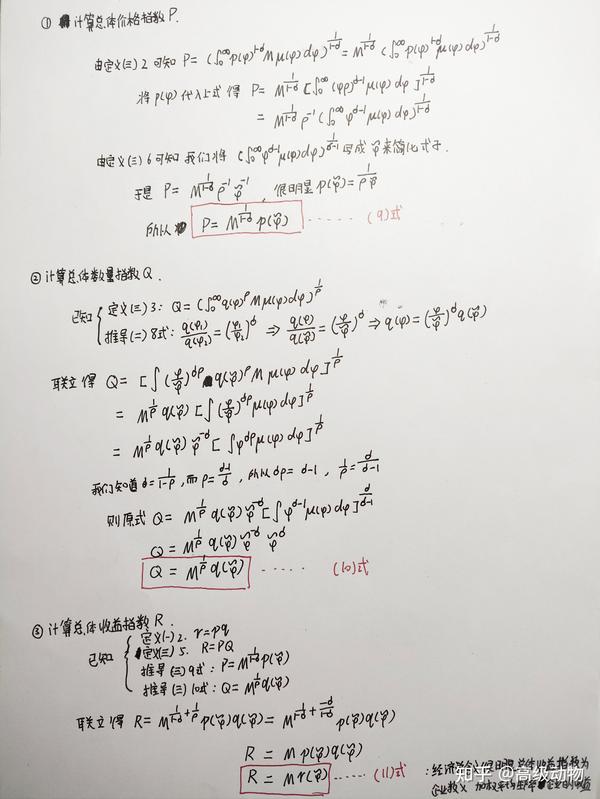 ① 计算总体价格指数P.
由定义(三)2可知 P = (∫₀^∞ p(φ)^{1-σ} M μ(φ) dφ)^{1/(1-σ)} = M^{1/(1-σ)} (∫₀^∞ p(φ)^{1-σ} μ(φ) dφ)^{1/(1-σ)}
将p(φ)代入上式得 P = M^{1/(1-σ)} [∫₀^∞ (φρ)^{σ-1} μ(φ) dφ]^{1/(1-σ)}
= M^{1/(1-σ)} ρ^{-1} (∫₀^∞ φ^{σ-1} μ(φ) dφ)^{1/(1-σ)}
由定义(三)6可知 我们将 (∫₀^∞ φ^{σ-1} μ(φ) dφ)^{1/(σ-1)} 写成 φ̃ 来简化式子.
于是 P = M^{1/(1-σ)} ρ^{-1} φ̃^{-1} , 很明显 p(φ̃) = 1/(ρφ̃)
所以 P = M^{1/(1-σ)} p(φ̃) ······ (9)式
② 计算总体数量指数Q.
已知 { 定义(三)3: Q = (∫₀^∞ q(φ)^ρ M μ(φ) dφ)^{1/ρ}
推导(二)8式: q(φ₁)/q(φ₂) = (φ₁/φ₂)^σ ⇒ q(φ)/q(φ̃) = (φ/φ̃)^σ ⇒ q(φ) = (φ/φ̃)^σ q(φ̃)
联立得 Q = [∫ (φ/φ̃)^{σρ} q(φ̃)^ρ M μ(φ) dφ]^{1/ρ}
= M^{1/ρ} q(φ̃) [∫ (φ/φ̃)^{σρ} μ(φ) dφ]^{1/ρ}
= M^{1/ρ} q(φ̃) φ̃^{-σ} [∫ φ^{σρ} μ(φ) dφ]^{1/ρ}
我们知道 σ = 1/(1-ρ), 而 ρ = (σ-1)/σ , 所以 σρ = σ-1 , 1/ρ = σ/(σ-1)
则原式 Q = M^{1/ρ} q(φ̃) φ̃^{-σ} [∫ φ^{σ-1} μ(φ) dφ]^{σ/(σ-1)}
Q = M^{1/ρ} q(φ̃) φ̃^{-σ} φ̃^σ
Q = M^{1/ρ} q(φ̃) ····· (10)式
③ 计算总体收益指数R.
已知 { 定义(一)2. r = pq
定义(三)5. R = PQ
推导(三)9式: P = M^{1/(1-σ)} p(φ̃)
推导(三)10式: Q = M^{1/ρ} q(φ̃)
联立得 R = M^{1/(1-σ) + 1/ρ} p(φ̃) q(φ̃) = M^{1/(1-σ) + (-σ)/(1-σ)} p(φ̃) q(φ̃)
R = M p(φ̃) q(φ̃)
R = M r(φ̃) ····· (11)式
知乎 @高级动物